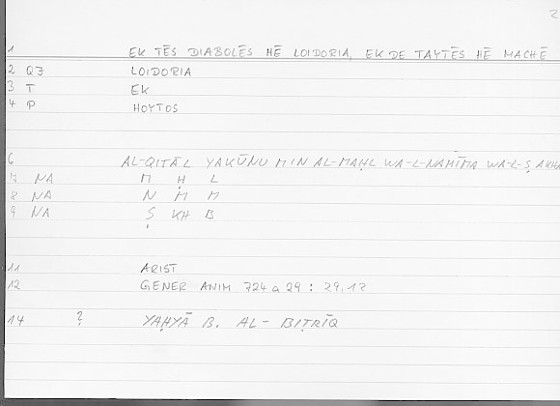 2
1 EK TĒS DIABOLĒS HĒ LOIDORIA, EK DE TAYTĒS HĒ MACHĒ
2 QZ LOIDORIA
3 T EK
4 P HOYTOS
6 AL-QITĀL YAKŪNU MIN AL-MAḤL WA-L-NAMĪMA WA-L-Ṣ AKHA
7 NA M Ḥ L
8 NA N M M
9 NA Ṣ KH B
11 ARIST
12 GENER ANIM 724a29 : 29,12
14 ? YAḤYĀ B. AL-BIṬRĪQ